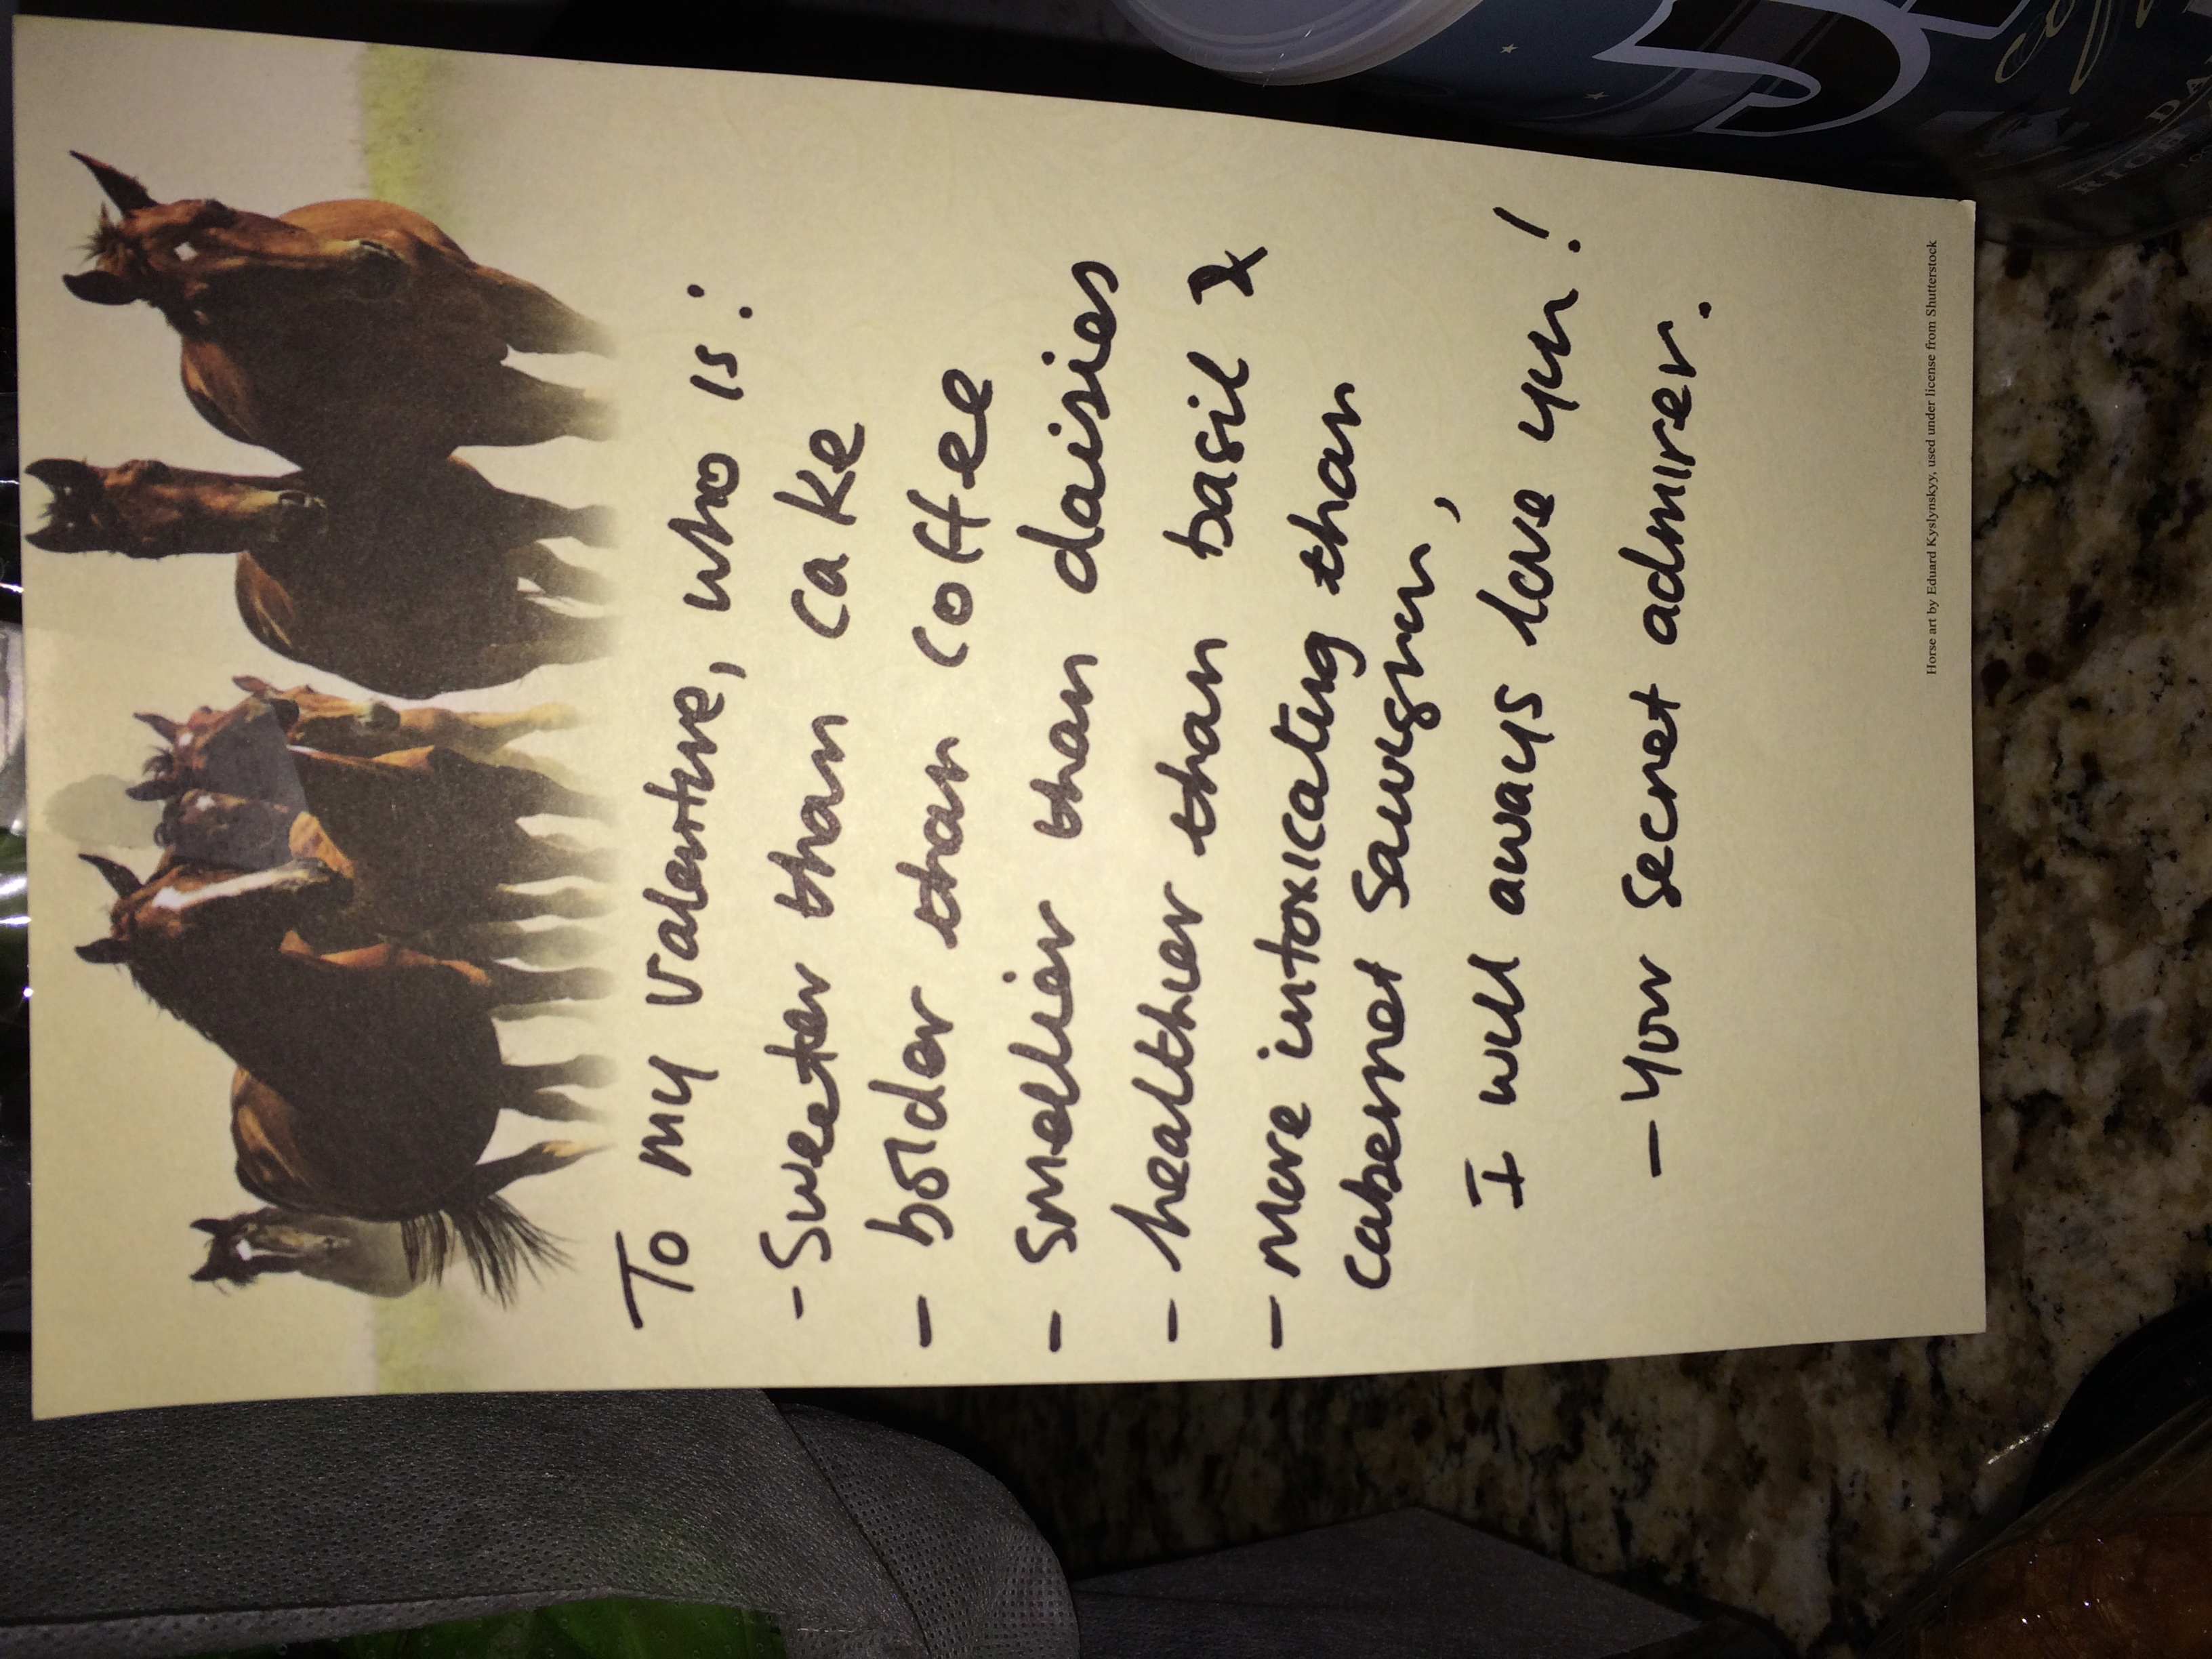 To my valentine, who is:
- Sweeter than cake
- bolder than coffee
- smellier than daisies
- healthier than basil &
- more intoxicating than
cabernet sauvgnon,
I will always love you!
- your secret admirer.
Horse art by Eduard Kyslynskyy, used under license from Shutterstock
RICH